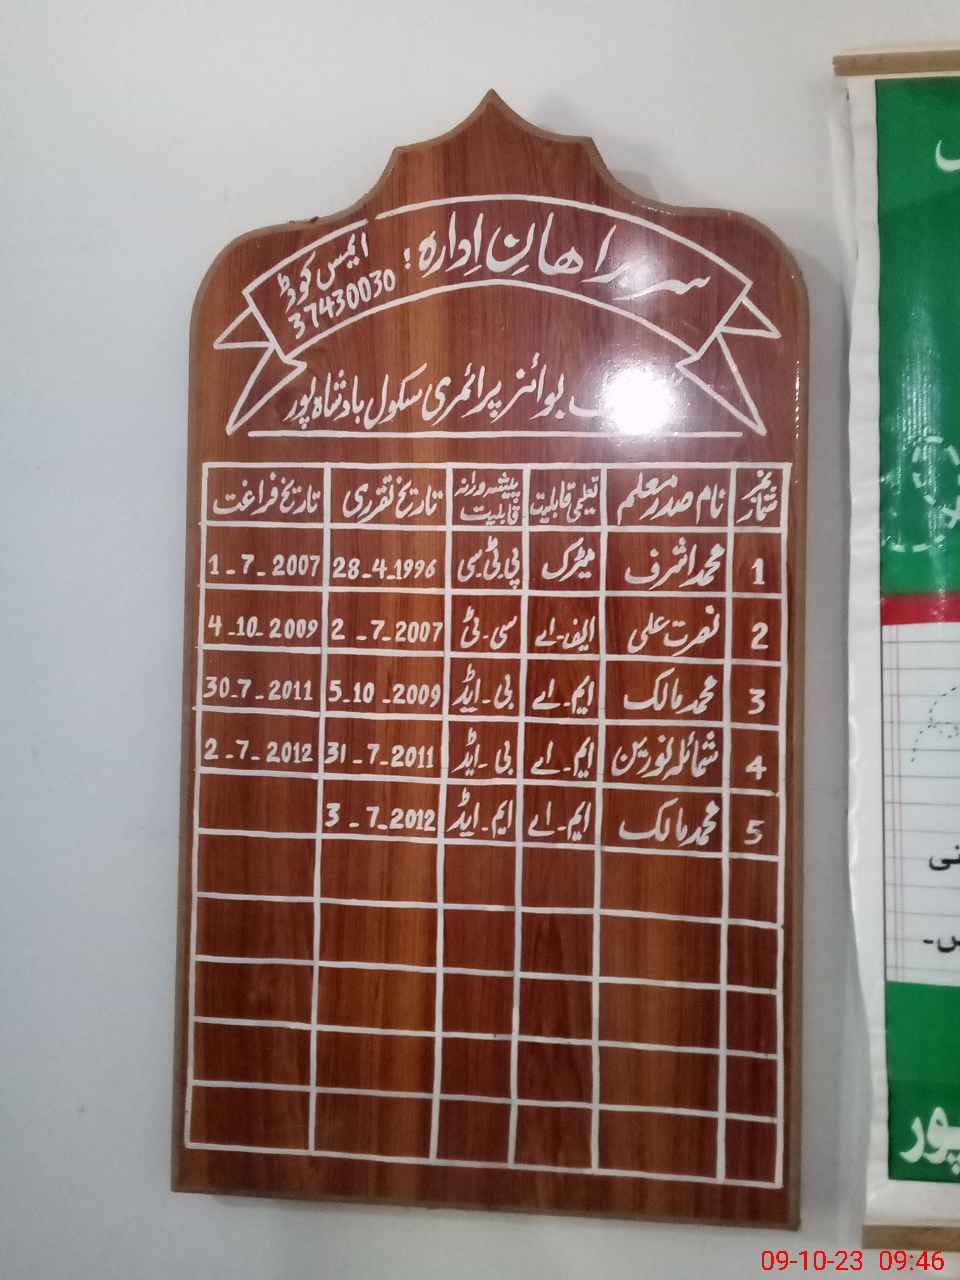 سربراہانِ اِدارہ:
ایمس کوڈ
37430030
بوائز پرائمری سکول بادشاہ پور
نمبر شمار نام صدر معلم تعلیمی قابلیت پیشہ ورانہ قابلیت تاریخ تقرری تاریخ فراغت
1 محمد اشرف میٹرک پی ٹی سی 28-4-1996 1-7-2007
2 نصرت علی ایف-اے سی-ٹی 2-7-2007 4-10-2009
3 محمد مالک ایم-اے بی-ایڈ 5-10-2009 30-7-2011
4 شمائلہ نورین ایم-اے بی-ایڈ 31-7-2011 2-7-2012
5 محمد مالک ایم-اے ایم-ایڈ 3-7-2012
پور
09-10-23 09:46